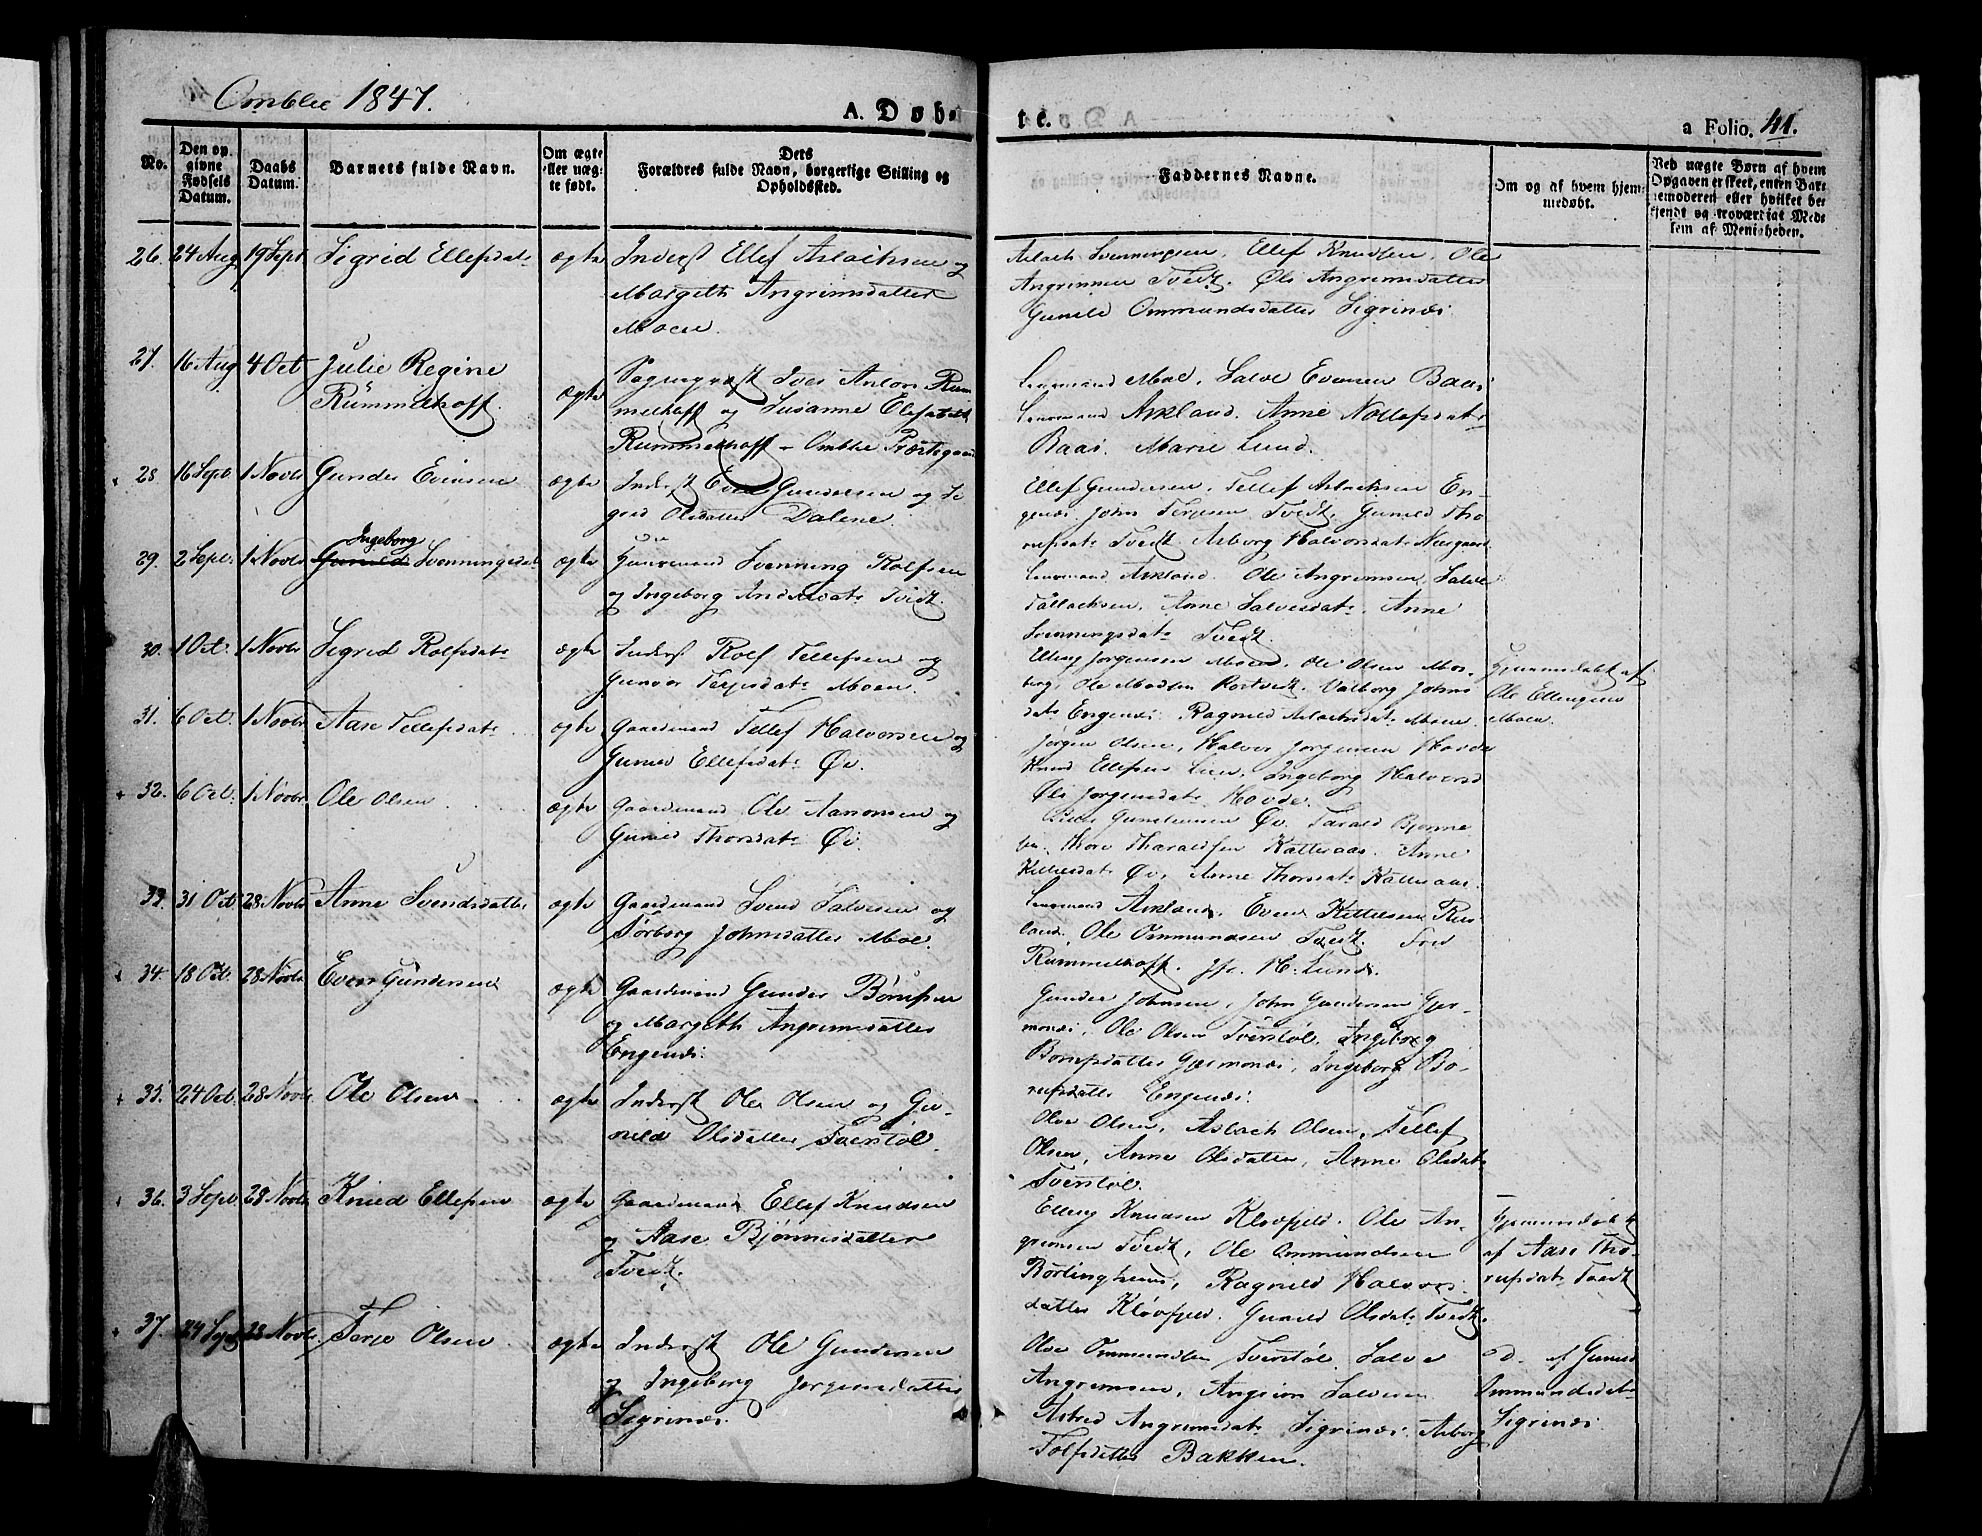 Omblie 1847.
A. Døb-
te.
a Folio. 41.
No.
Den op-
givne
Fødsels
Datum.
Daabs
Datum.
Barnets fulde Navn.
Om ægte
eller uæg-
te født.
Dets
Forældres fulde Navn, borgerlige Stilling og
Opholdssted.
Faddernes Navne.
Om og af hvem hjem-
medøbt.
Ved uægte Børn af hvem
Opgaven er skeet, enten Bar-
nemoderen eller hvilket be-
kjendt og troværdigt Med-
lem af Menigheden.
26. 24 Aug 19 Sept Sigrid Ellefsdatr ægte Inderst Ellef Aslachsen og
Margeth Angrimsdatter
Moen.
Aslach Svenningsen, Ellef Knudsen, Ole
Angrimsen Tvedt. Øli Angrimsdatter
Gunild Ommundsdatter Sigrinæs
27. 16 Aug 4 Oct Julie Regine
Rümmelhoff.
ægte
Iver Anton Rum-
melhoff og Susanne
Rummelhoff - Omblie
Lensmand Moe, Salve Evensen Baas
Lensmand Askland. Anne Nollefsdatr
Baas. Marie Lund.
28 16 Sept. 1 Novbr Gunder Evensen ægte Inderst Even Gundersen og Si-
grid Olsdatter Dalene
Ellef Gundersen, Tellef Aslachsen En-
genæs John Terjesen Tvedt, Gunild Tho-
rupsdatr Tvedt. Asborg Halvorsdatr
29. 2 Sept: 1 Novbr Ingeborg
Gunild Svenningsdatr ægte Huusmand Svenning Rolfsen
og Ingeborg Andersdatr Tvedt.
Lensmand Askland. Ole Angrimsen, Salve
Tallachsen, Anne Salvesdatr, Anne
Svenningsdatr Tvedt.
30. 1 Oct. 1 Novbr Sigrid Rolfsdatr ægte Inderst Rolf Tellefsen og
Gunvor Terjesdatr Moen.
Elling Jørgensen Moen, Ole Olsen Mos-
berg, Ole Madsen Rostvedt. Valborg Johns-
datr Engenæs. Ragnild Aslachsdatr Moen.
Hjemmedøbt af
Ole Ellingsen
Moen.
31. 6 Oct. 1 Novbr Aase Tellefsdatr ægte Gaardmand Tellef Halvorsen og
Gunild Ellefsdatr Øv.
Jørgen Olsen, Halvor Jørgensen Hovde
Knud Ellefsen Lien, Ingeborg Halvorsd
Øli Jørgensdatr Hovde.
32. 6 Oct. 1 Novbr Ole Olsen ægte Gaardmand Ole Aanonsen og
Gunild Thorsdatr Øv.
Gundersen Øv. Tarald Bjønne-
bu. Thore Tharaldsen Katteraas. Anne
Kittelsdatr Øv, Anne Thorsdatr Katteraas.
33. 31 Oct 28 Novbr Anne Svendsdatter ægte Gaardmand Svend Salvesen og
Torborg Johnsdatter Moe.
Lensmand Askland, Even Kittelsen Rus-
land. Ole Ommundsen Tvedt.
Rummelhoff. Jfr. H. Lund.
34. 18 Oct. 28 Novbr Even Gundersen ægte Gaardmand Gunder Børufsen
og Margeth Angrimsdatter
Engenæs.
Gunder Johnsen, John Gundersen Gjer-
monæs, Ole Olsen Tverstøl, Ingeborg
Borufsdatter Gjermonæs, Ingeborg Bo-
rufsdatter Engenæs.
35. 24 Oct. 28 Novbr. Ole Olsen ægte Inderst Ole Olsen og Gu-
nild Olsdatter Tverstøl.
Olve Olsen, Aslach Olsen, Tellef
Olsen, Anne Olsdatter, Anne Olsdatr
Tverstøl.
36. 3 Sept 28 Novbr Knud Ellefsen ægte Gaardmand Ellef Knudsen
og Aase Bjønnesdatter
Tvedt.
Elling Knudsen Kløvfjeld. Ole An-
grimsen Tvedt, Ole Ommundsen
Ragnild Halvors-
datter Kløvfjeld. Gunild Olsdatr Tvedt.
Hjemmedøbt
af Aase Tho-
rufsdatr Tvedt
37. 24 Sept 28 Novbr. Terje Olsen ægte Inderst Ole Gundersen
og Ingeborg Jørgensdatter
Sigrinæs.
Olve Ommundsen Tverstøl. Salve
Angrimsen, Angrim Salvesen
Astrid Angrimsdatr Sigrinæs. Asborg
Tolfsdatter Bakken.
do. af Gunild
Ommundsdatr
Sigrinæs.